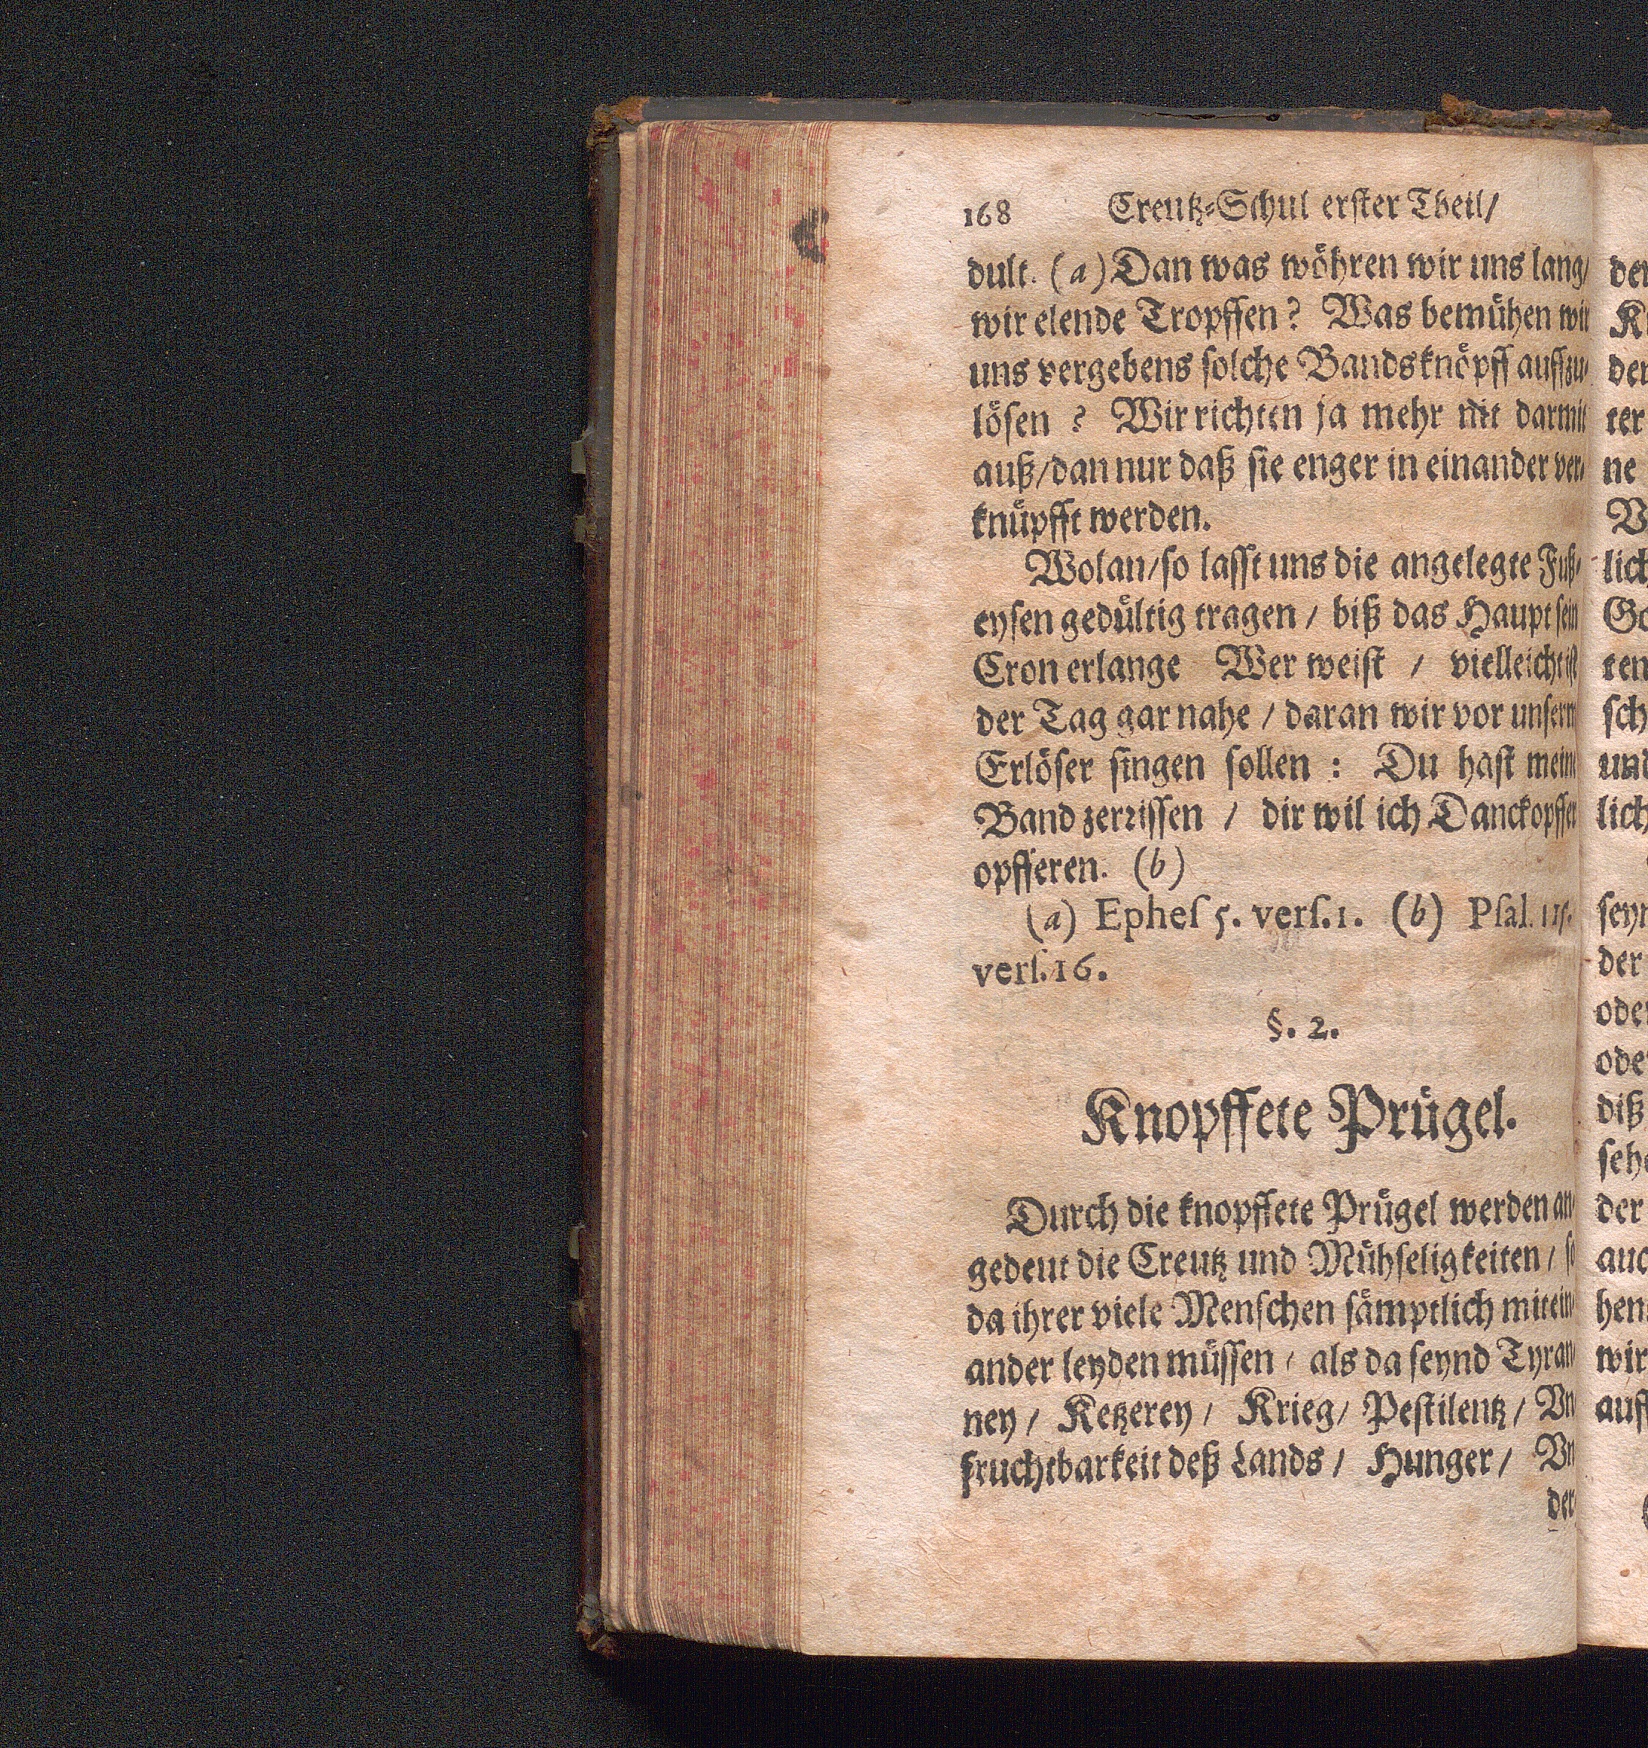 168 Creutz-Schul erster Theil/
dult. (a) Dan was wöhren wir uns lang/
wir elende Tropffen? Was bemühen wir
uns vergebens solche Bandsknöpff auffzu-
lösen? Wir richten ja mehr nit darmit
auß/dan nur daß sie enger in einander ver-
knüpfft werden.
Wolan/so lasst uns die angelegte Fuß-
eysen gedültig tragen / biß das Haupt sein
Cron erlange Wer weist / vielleicht ist
der Tag gar nahe / daran wir vor unserm
Erlöser singen sollen: Du hast meine
Band zerrissen / dir wil ich Danckopffer
opfferen. (b)
(a) Ephes 5. vers. 1. (b) Psal. 115.
vers. 16.
§. 2.
Knopffete Prügel.
Durch die knopffete Prügel werden an-
gedeut die Creutz und Mühseligkeiten / so
da ihrer viele Menschen sämptlich mitein-
ander leyden müssen / als da seynd Tyran-
ney / Ketzerey / Krieg / Pestilentz / Vn-
fruchtbarkeit deß Lands / Hunger / Vn-
der